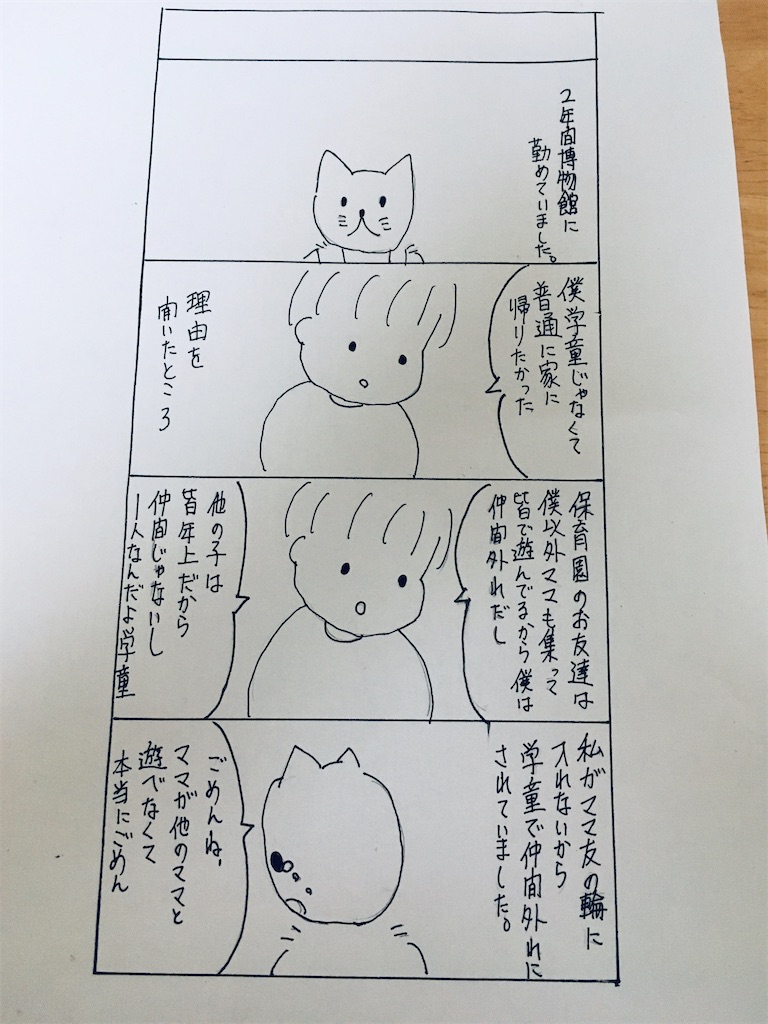 2年間博物館に
勤めていました。
僕学童じゃなくて
普通に家に
帰りたかった
理由を
聞いたところ
保育園のお友達は
僕以外ママも集って
皆で遊んでるから僕は
仲間外れだし
他の子は
皆年上だから
仲間じゃないし
1人なんだよ学童
私がママ友の輪に
入れないから
学童で仲間外れに
されていました。
ごめんね、
ママが他のママと
遊べなくて
本当にごめん